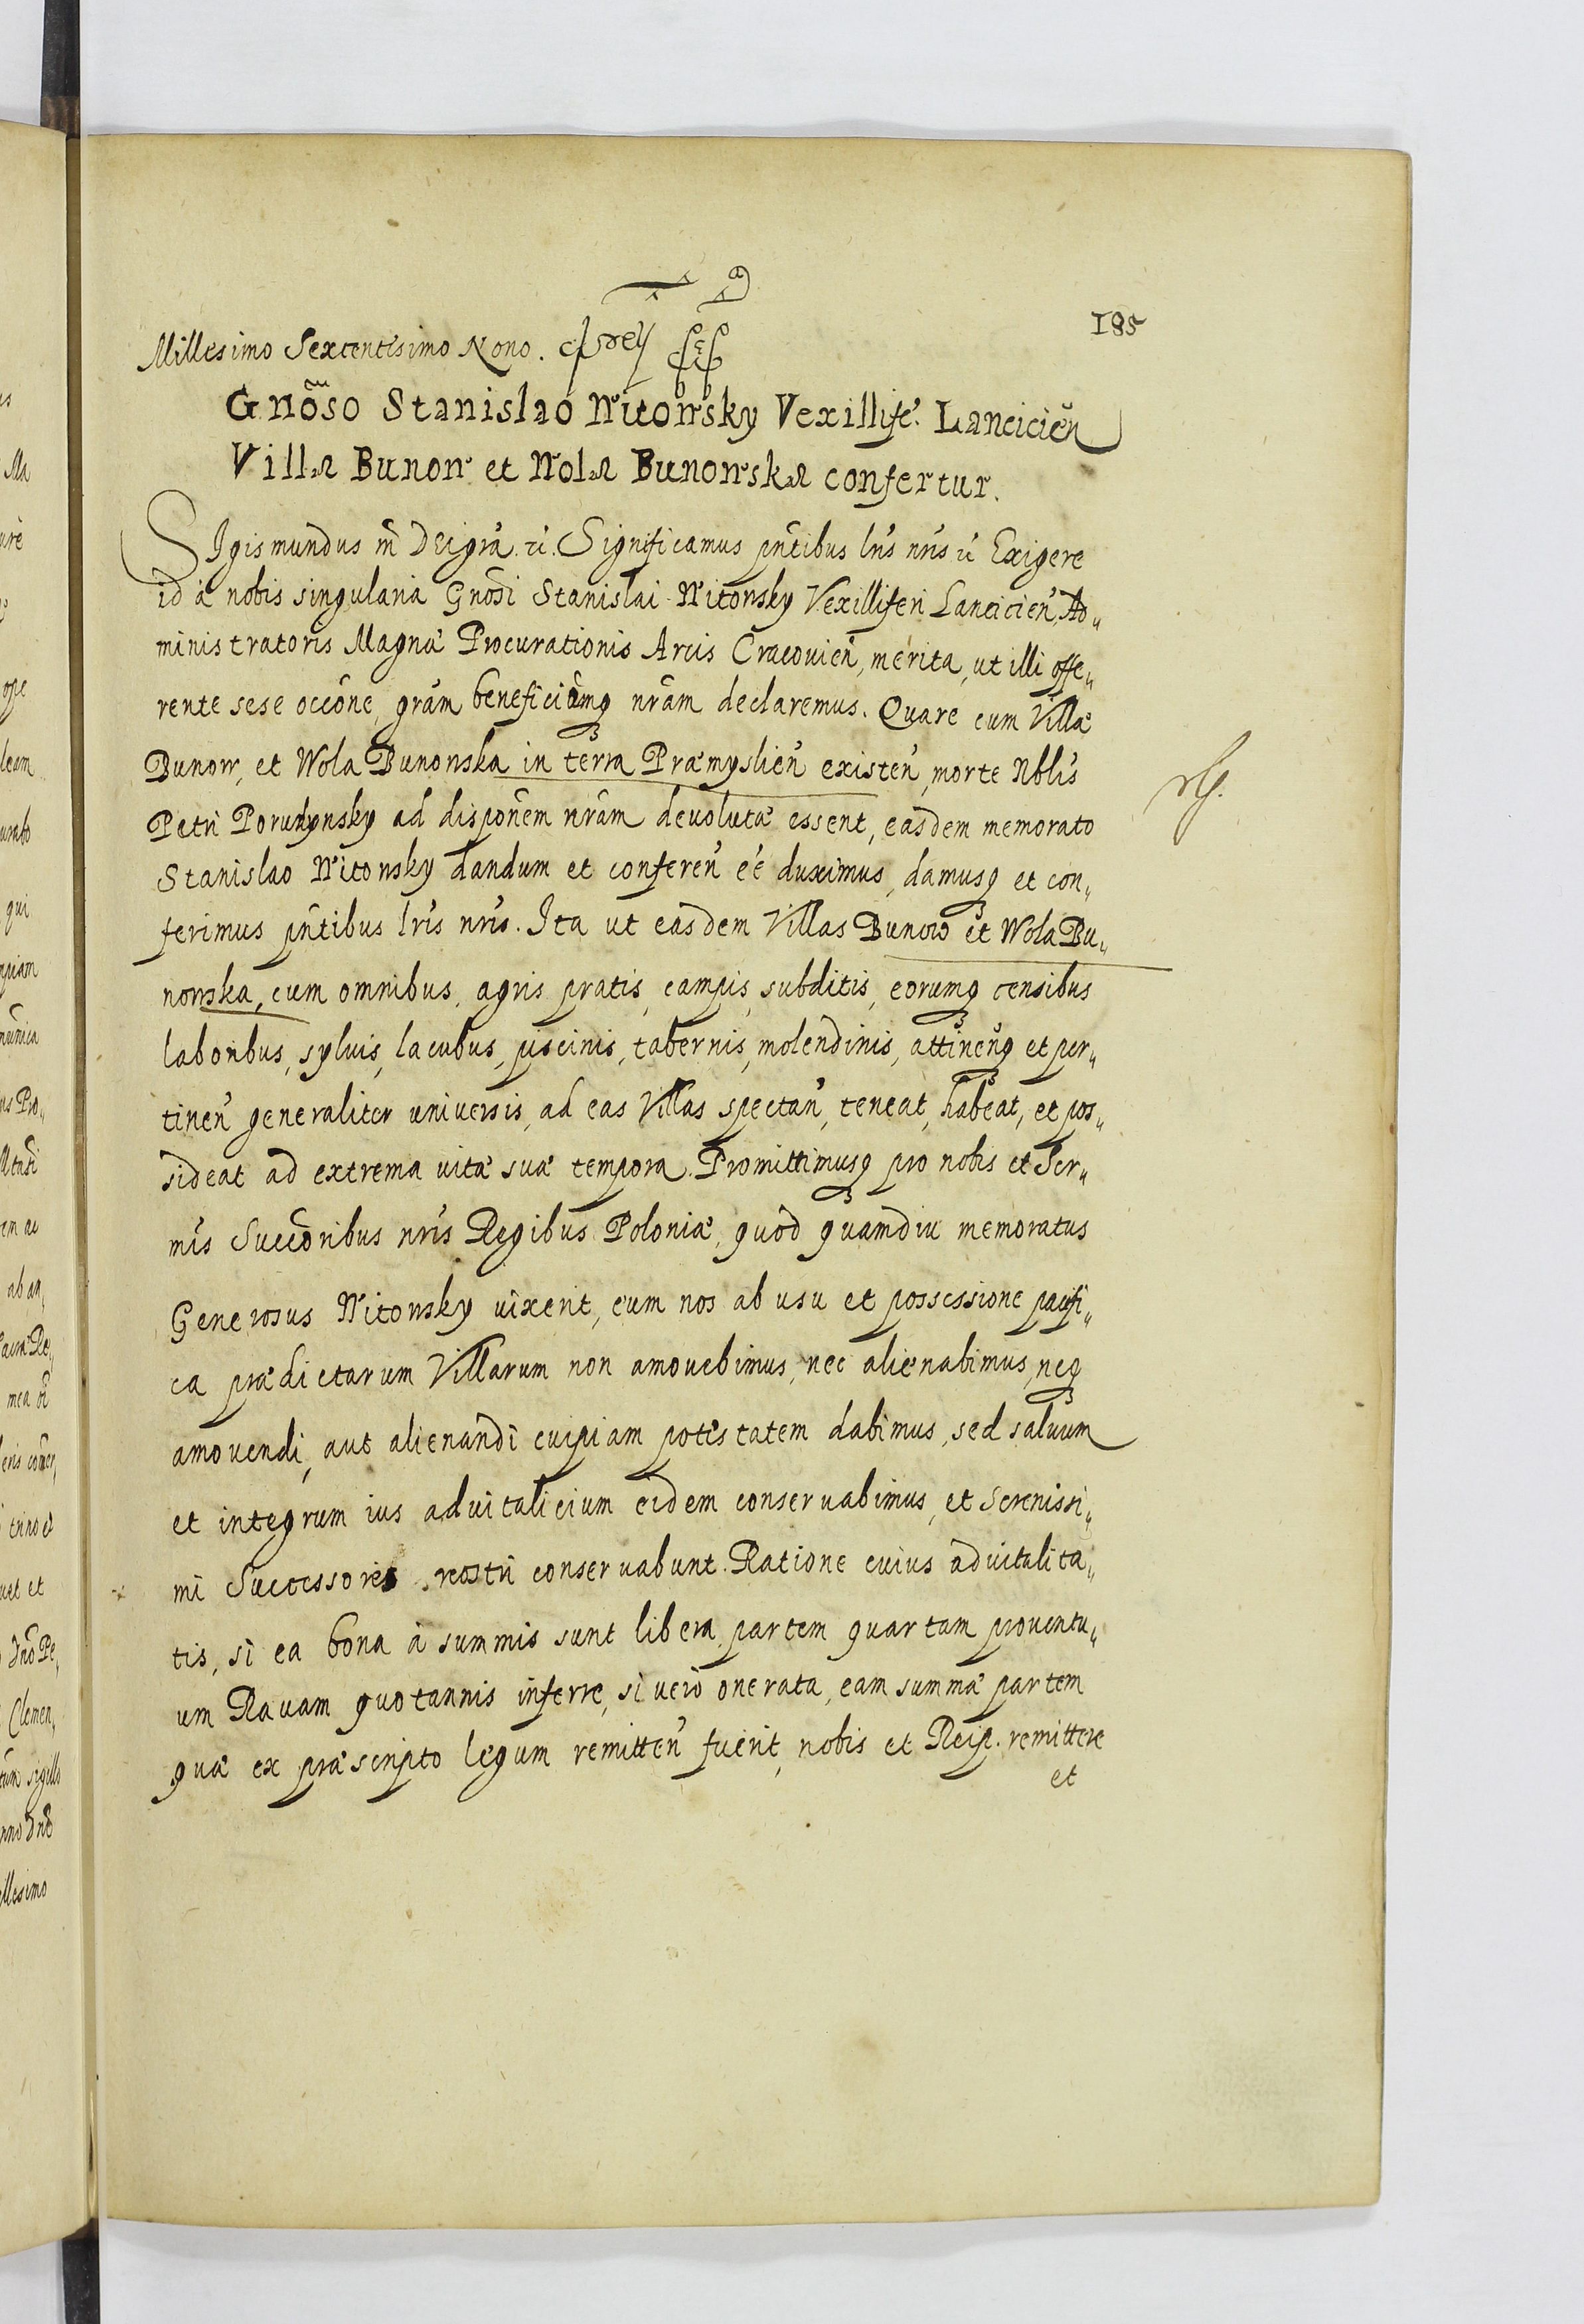 185
Millesimo Sextentesimo Nono.
Gnõso Stanislao Witowsky Vexillife. Lancicieñ
Villæ Bunow et Wolæ Bunowskæ confertur.
SIgismundus iii Dei grã. ĩc. Significamus pñtibus lrĩs nrĩs ĩc Exigere
id à nobis singularia Gnõsi Stanislai Witowsky Vexilliferi Lancicieñ, Ad„
ministratoris Magnæ Procurationis Arcis Cracouieñ, merita, ut illi offe„
rente sese occõne, grãm beneficiamq nrãm declaremus. Quare cum Villæ
Bunow, et Wola Bunowska in terra Præmyslieñ existeñ, morte Nblĩs
Petri Porudynsky ad disponẽm nrãm deuolutæ essent, easdem memorato
Stanislao Witowsky dandum et confereñ eẽ duximus, damusq et con„
ferimus pñtibus lrĩs nrĩs. Ita ut easdem Villas Bunow et Wola Bu„
nowska, cum omnibus, agris pratis, campis, subditis, eorumq censibus
laboribus, syluis, lacubus, piscinis, tabernis, molendinis, attineñq et per„
tineñ generaliter uniuersis, ad eas Villas spectañ, teneat, habeat, et pos„
sideat ad extrema uitæ suæ tempora. Promittimusq pro nobis et Ser„
mĩs Succõribus nrĩs Regibus Poloniæ, quòd quamdiu memoratus
Generosus Witowsky uixerit, eum nos ab usu et possessione pacifi„
ca prædictarum Villarum non amouebimus, nec alienabimus, neq
amouendi, aut alienandi cuipiam potestatem dabimus, sed saluum
et integrum ius aduitalicium eidem conseruabimus, et Serenissi„
mi Successores nostri conseruabunt. Ratione cuius aduitalita„
tis, si ea bona à summis sunt libera, partem quartam prouentu„
um Rauam quotannis inferre, si uerò onerata, eam summæ partem
quæ ex præscripto legum remitteñ fuerit, nobis et Reip. remittere
et